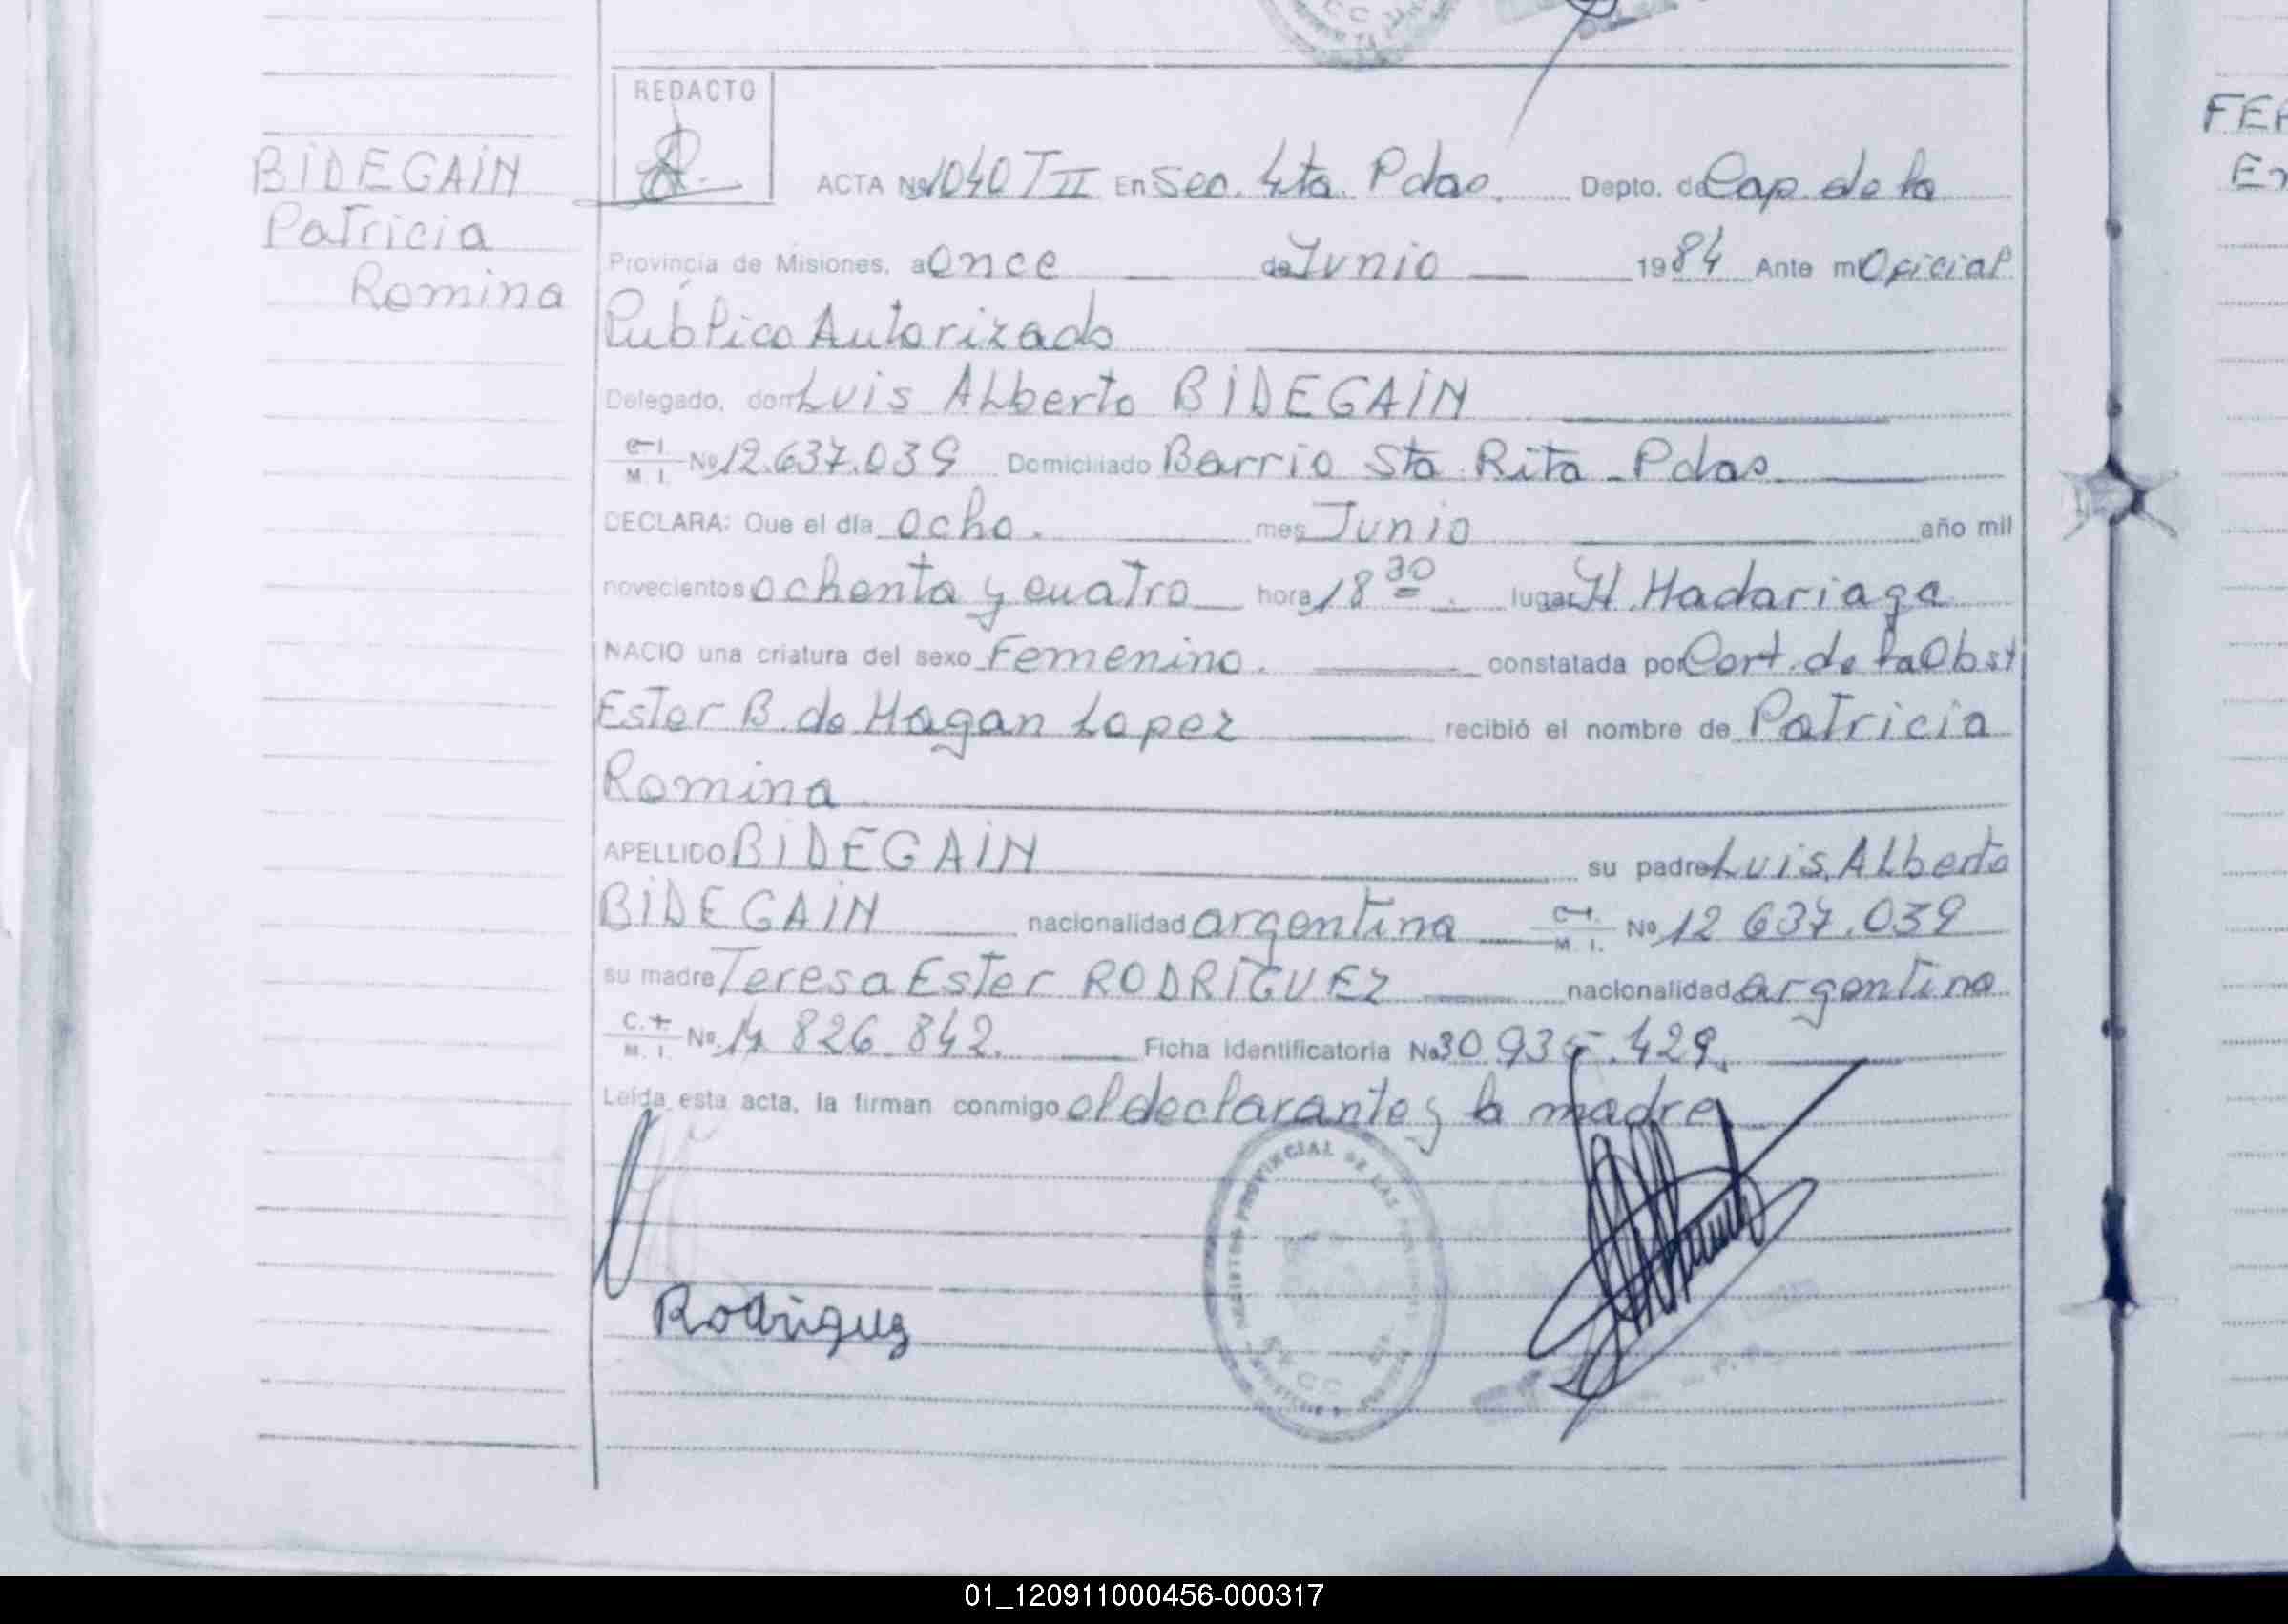 REDACTO
BIDEGAIN
Patricia
Romina
ACTA Nº 1040 T II En Sec. 4ta. Pdas. Depto. de Cap. de la
Provincia de Misiones, a once de Junio 1984 Ante mi Oficial
Público Autorizado
Delegado, don Luis ALberto BIDEGAIN
C.I. M. I. Nº 12.637.039 Domiciliado Barrio Sta. Rita - Pdas.
DECLARA: Que el día ocho. mes Junio año mil
novecientos ochenta y cuatro hora 18 30 . lugar H. Madariaga
NACIO una criatura del sexo Femenino. constatada por Cert. de la Obst
Ester B. de Hagan Lopez recibió el nombre de Patricia
Romina
APELLIDO BIDEGAIN su padre Luis ALberto
BIDEGAIN nacionalidad argentina C.I. M. I. Nº 12 637.039
su madre Teresa Ester RODRIGUEZ nacionalidad argentina
C.I. M. I. Nº 14 826.842. Ficha identificatoria Nº 30.935.429.
Leída esta acta, la firman conmigo el declarante y la madre
REGISTRO PROVINCIAL DE LAS PERSONAS
Rodriguez
FER
01_120911000456-000317